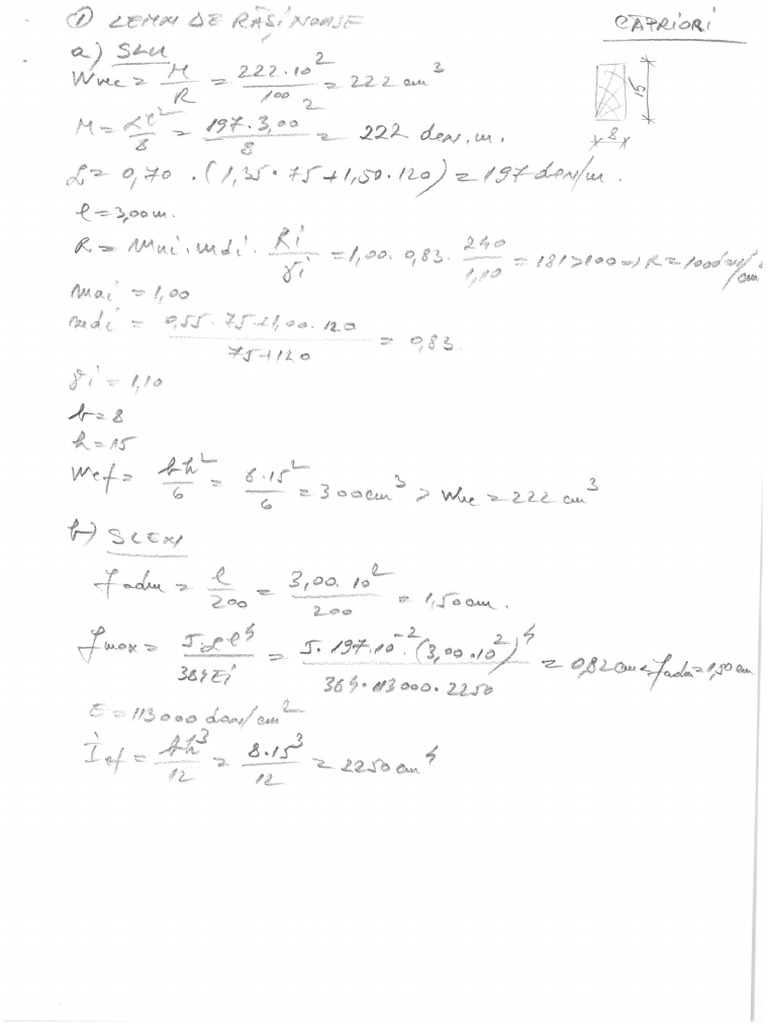 ① LEMN DE RĂȘINOASE
CAPRIORI
a) SLU
Wnec = M/R = 222·10²/100 = 222 cm³
15
8
M = αl²/8 = 197·3,00²/8 = 222 daN.m.
α = 0,70 · (1,35·75+1,50·120) = 197 daN/m.
l = 3,00m.
R = mai·mdi· Ri/γi = 1,00·0,83· 240/1,10 = 181>100 ⇒ R = 100daN/cm²
mai = 1,00
mdi = 0,55·75+1,00·120/75+120 = 0,83.
γi = 1,10
b = 8
h = 15
Wef = bh²/6 = 8·15²/6 = 300cm³ > Wnec = 222 cm³
b) SLEN
fadm = l/200 = 3,00·10²/200 = 1,50cm.
fmax = 5·αl⁴/384Ei = 5·197·10⁻²·(3,00·10²)⁴/364·113000·2250 = 0,82cm<fadm=1,50cm
E = 113000 daN/cm²
Ief = bh³/12 = 8·15³/12 = 2250cm⁴